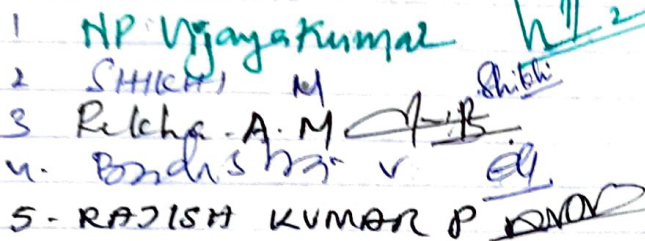 1 NP Vijayakumar
2 SHIKHI M Shikhi
3 Rekha. A. M
4. V
5 - RAJISH KUMAR P